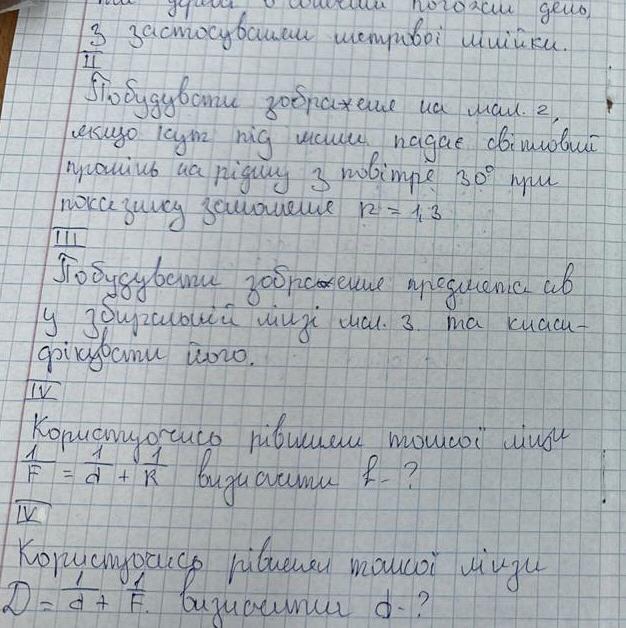 дерева в сонячний погожий день,
з застосуванням метрової лінійки.
II
Побудувати зображення на мал. 2,
якщо кут під яким падає світловий
промінь на рідину з повітря 30° при
показнику заломлення n = 1,3
III
Побудувати зображення предмета ав
у збиральній лінзі мал. 3. та класи-
фікувати його.
IV
Користуючись рівнянням тонкої лінзи
1/F = 1/d + 1/R визначити f - ?
IV
Користуючись рівнянням тонкої лінзи
D = 1/d + 1/F. визначити d - ?